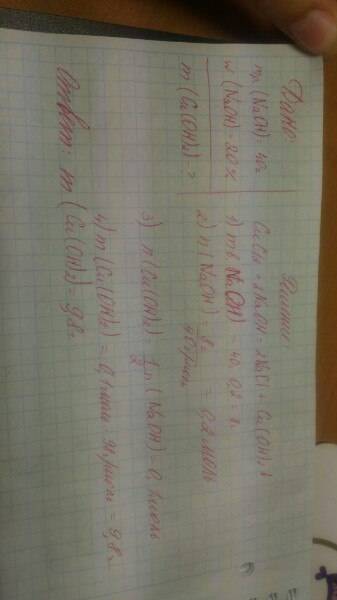 Дано:
mр (NaOH) = 40г
w (NaOH) = 20%
m (Cu(OH)₂) - ?
Решение
CuCl₂ + 2NaOH = 2NaCl + Cu(OH)₂↓
1) mв. (NaOH) = 40 · 0,2 = 8г
2) n (NaOH) = 8г / 40г/моль = 0,2 моль
3) n (Cu(OH)₂) = 1/2 n (NaOH) = 0,1 моль
4) m (Cu(OH)₂) = 0,1 моль · 98г/моль = 9,8г
Ответ: m (Cu(OH)₂) = 9,8г